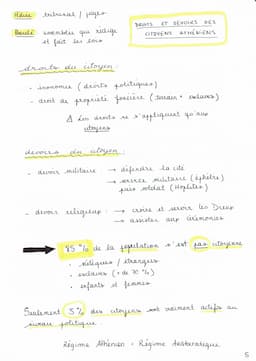 Héliée tribunal / juges
DROITS ET DEVOIRS DES
CITOYENS ATHÉNIENS
Boulé assemblée qui rédige
et fait les lois
droits du citoyen :
- isonomie (droits politiques)
- droit de propriété foncière (terrain + esclaves)
⚠ Les droits ne s'appliquent qu'aux
citoyens
devoirs du citoyen :
- devoir militaire → défendre la cité
→ service militaire (éphèbe)
puis soldat (Hoplites)
- devoir religieux : → croire et servir les Dieux
→ assister aux cérémonies
85 % de la population n'est pas citoyenne
• métèques / étrangers
• esclaves (+ de %)
• enfants et femmes
Seulement 5 % des citoyens sont vraiment actifs au
niveau politique
Régime Athénien = Régime
5